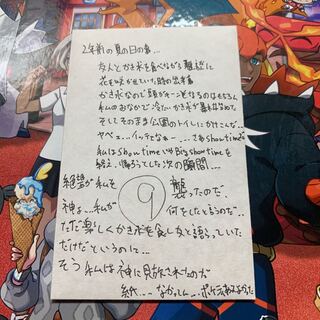 2年前の夏の日の事…
友人とかき氷を食べながら雑談に
花を咲かせていた時の出来事
かき氷なので頭がキーンとなるのはもちろん
私のおなかで冷たいかき氷が暴れ始めて
そしてそのまま公園のトイレにかけこんだ…
ヤベェ…イッテェなぁー…さぁshow timeだ
私はshow timeいやBig show timeを
終え、帰ろうとした次の瞬間…
絶望が私を襲ったのだ、
神よ…私が何をしたと言うのだ…
9
ただ楽しくかき氷を食し友と語っていた
だけだというのに…
そう私は神に見放されたのだ
紙…なかったん…ポケティあってよかった